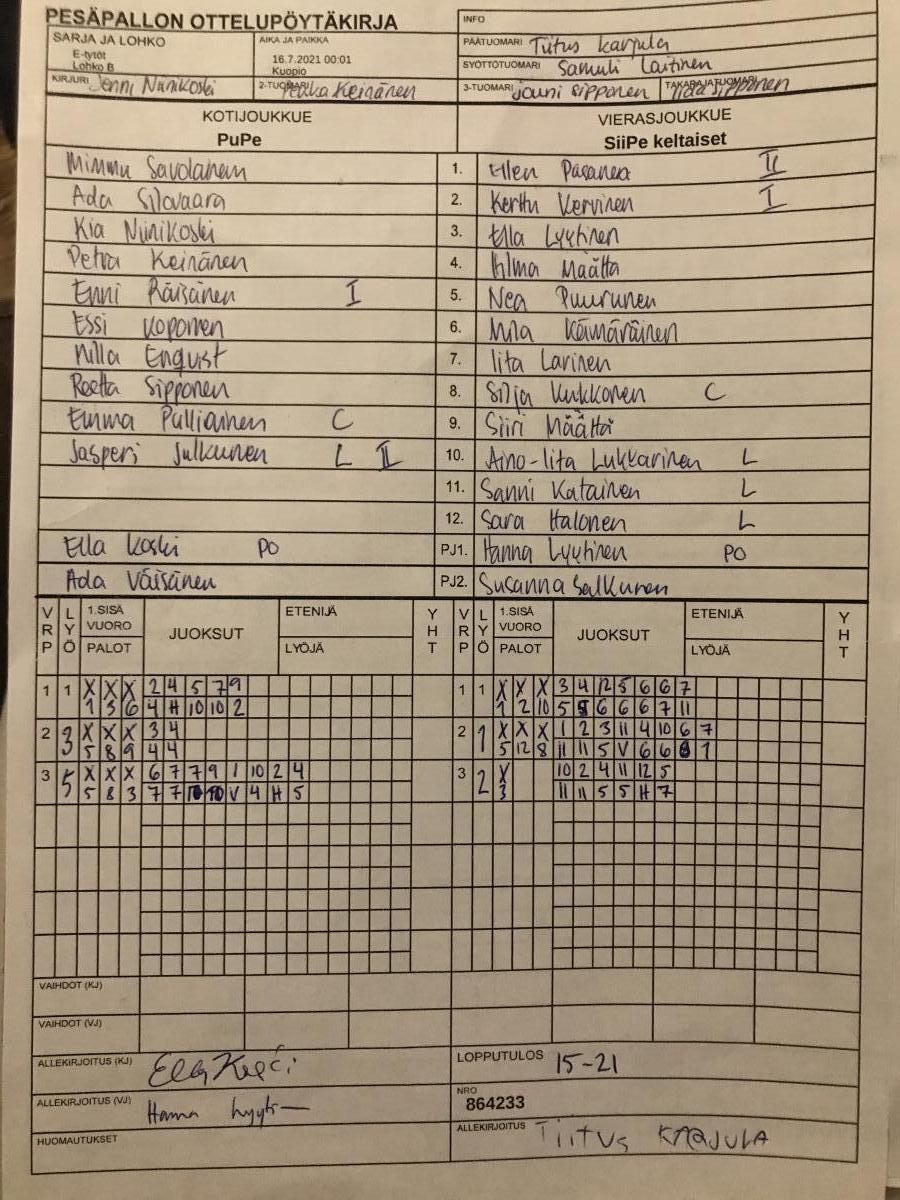 PESÄPALLON OTTELUPÖYTÄKIRJA
INFO
SARJA JA LOHKO
E-tytöt
Lohko B
AIKA JA PAIKKA
16.7.2021 00:01
Kuopio
PÄÄTUOMARI Tiitus Karjula
SYÖTTÖTUOMARI Samuli Laitinen
KIRJURI Jenni Niinikoski
2-TUOMARI Pekka Keinänen
3-TUOMARI Jouni Sipponen
TAKARAJATUOMARI Iida Sipponen
KOTIJOUKKUE
PuPe
VIERASJOUKKUE
SiiPe keltaiset
Mimmu Savolainen 1. Ellen Pasanen II
Ada Silovaara 2. Kerttu Kervinen I
Kia Niinikoski 3. Ella Lyytinen
Petra Keinänen 4. Ilma Määttä
Enni Räisänen I 5. Nea Puurunen
Essi Koponen 6. Mila Keimäräinen
Milla Enqvist 7. Iita Larinen
Reetta Sipponen 8. Silja Kukkonen C
Emma Pulliainen C 9. Siiri Määttä
Jasperi Julkunen L II 10. Aino-Iita Lukkarinen L
11. Sanni Katainen L
12. Sara Halonen L
Ella Koski PO PJ1. Hanna Lyytinen PO
Ada Väisänen PJ2. Susanna Salkunen
VRP LYÖ 1.SISÄ VUORO PALOT JUOKSUT ETENIJÄ LYÖJÄ YHT VRP LYÖ 1.SISÄ VUORO PALOT JUOKSUT ETENIJÄ LYÖJÄ YHT
1 1 X X X 2 4 5 7 9 1 1 X X X 3 4 12 5 6 6 7
1 3 6 4 H 10 10 2 1 2 10 5 5 6 6 6 7 11
2 3 X X X 3 4 2 1 X X X 1 2 3 11 4 10 6 7
5 8 9 4 4 5 12 8 11 11 5 V 6 6 8 7
3 5 X X X 6 7 7 9 1 10 2 4 3 2 X 10 2 4 11 12 5
5 8 3 7 7 10 10 V 4 H 5 3 11 11 5 5 H 7
VAIHDOT (KJ)
VAIHDOT (VJ)
ALLEKIRJOITUS (KJ)
LOPPUTULOS 15-21
ALLEKIRJOITUS (VJ) Hanna Lyyt
NRO
864233
HUOMAUTUKSET
ALLEKIRJOITUS TIITUS KARJULA